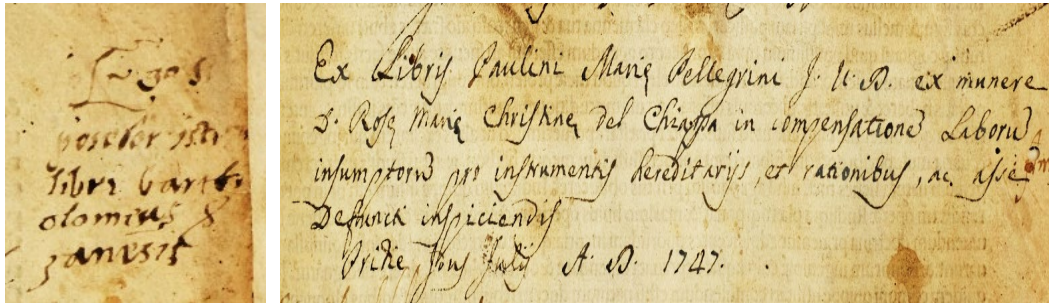 Ego s
posesor isti
libri bart
olomeus
Ex Libris Paulini Marię Pellegrini J. U. D. ex munere
D. Rosę Marię Christinę del Chiappa in compensationē Laborū
insumptorū pro instrumentis hereditarijs, et rationibus, ac asse
Defuncti inspiciendis
Pridie Idus Julij A. D. 1747.